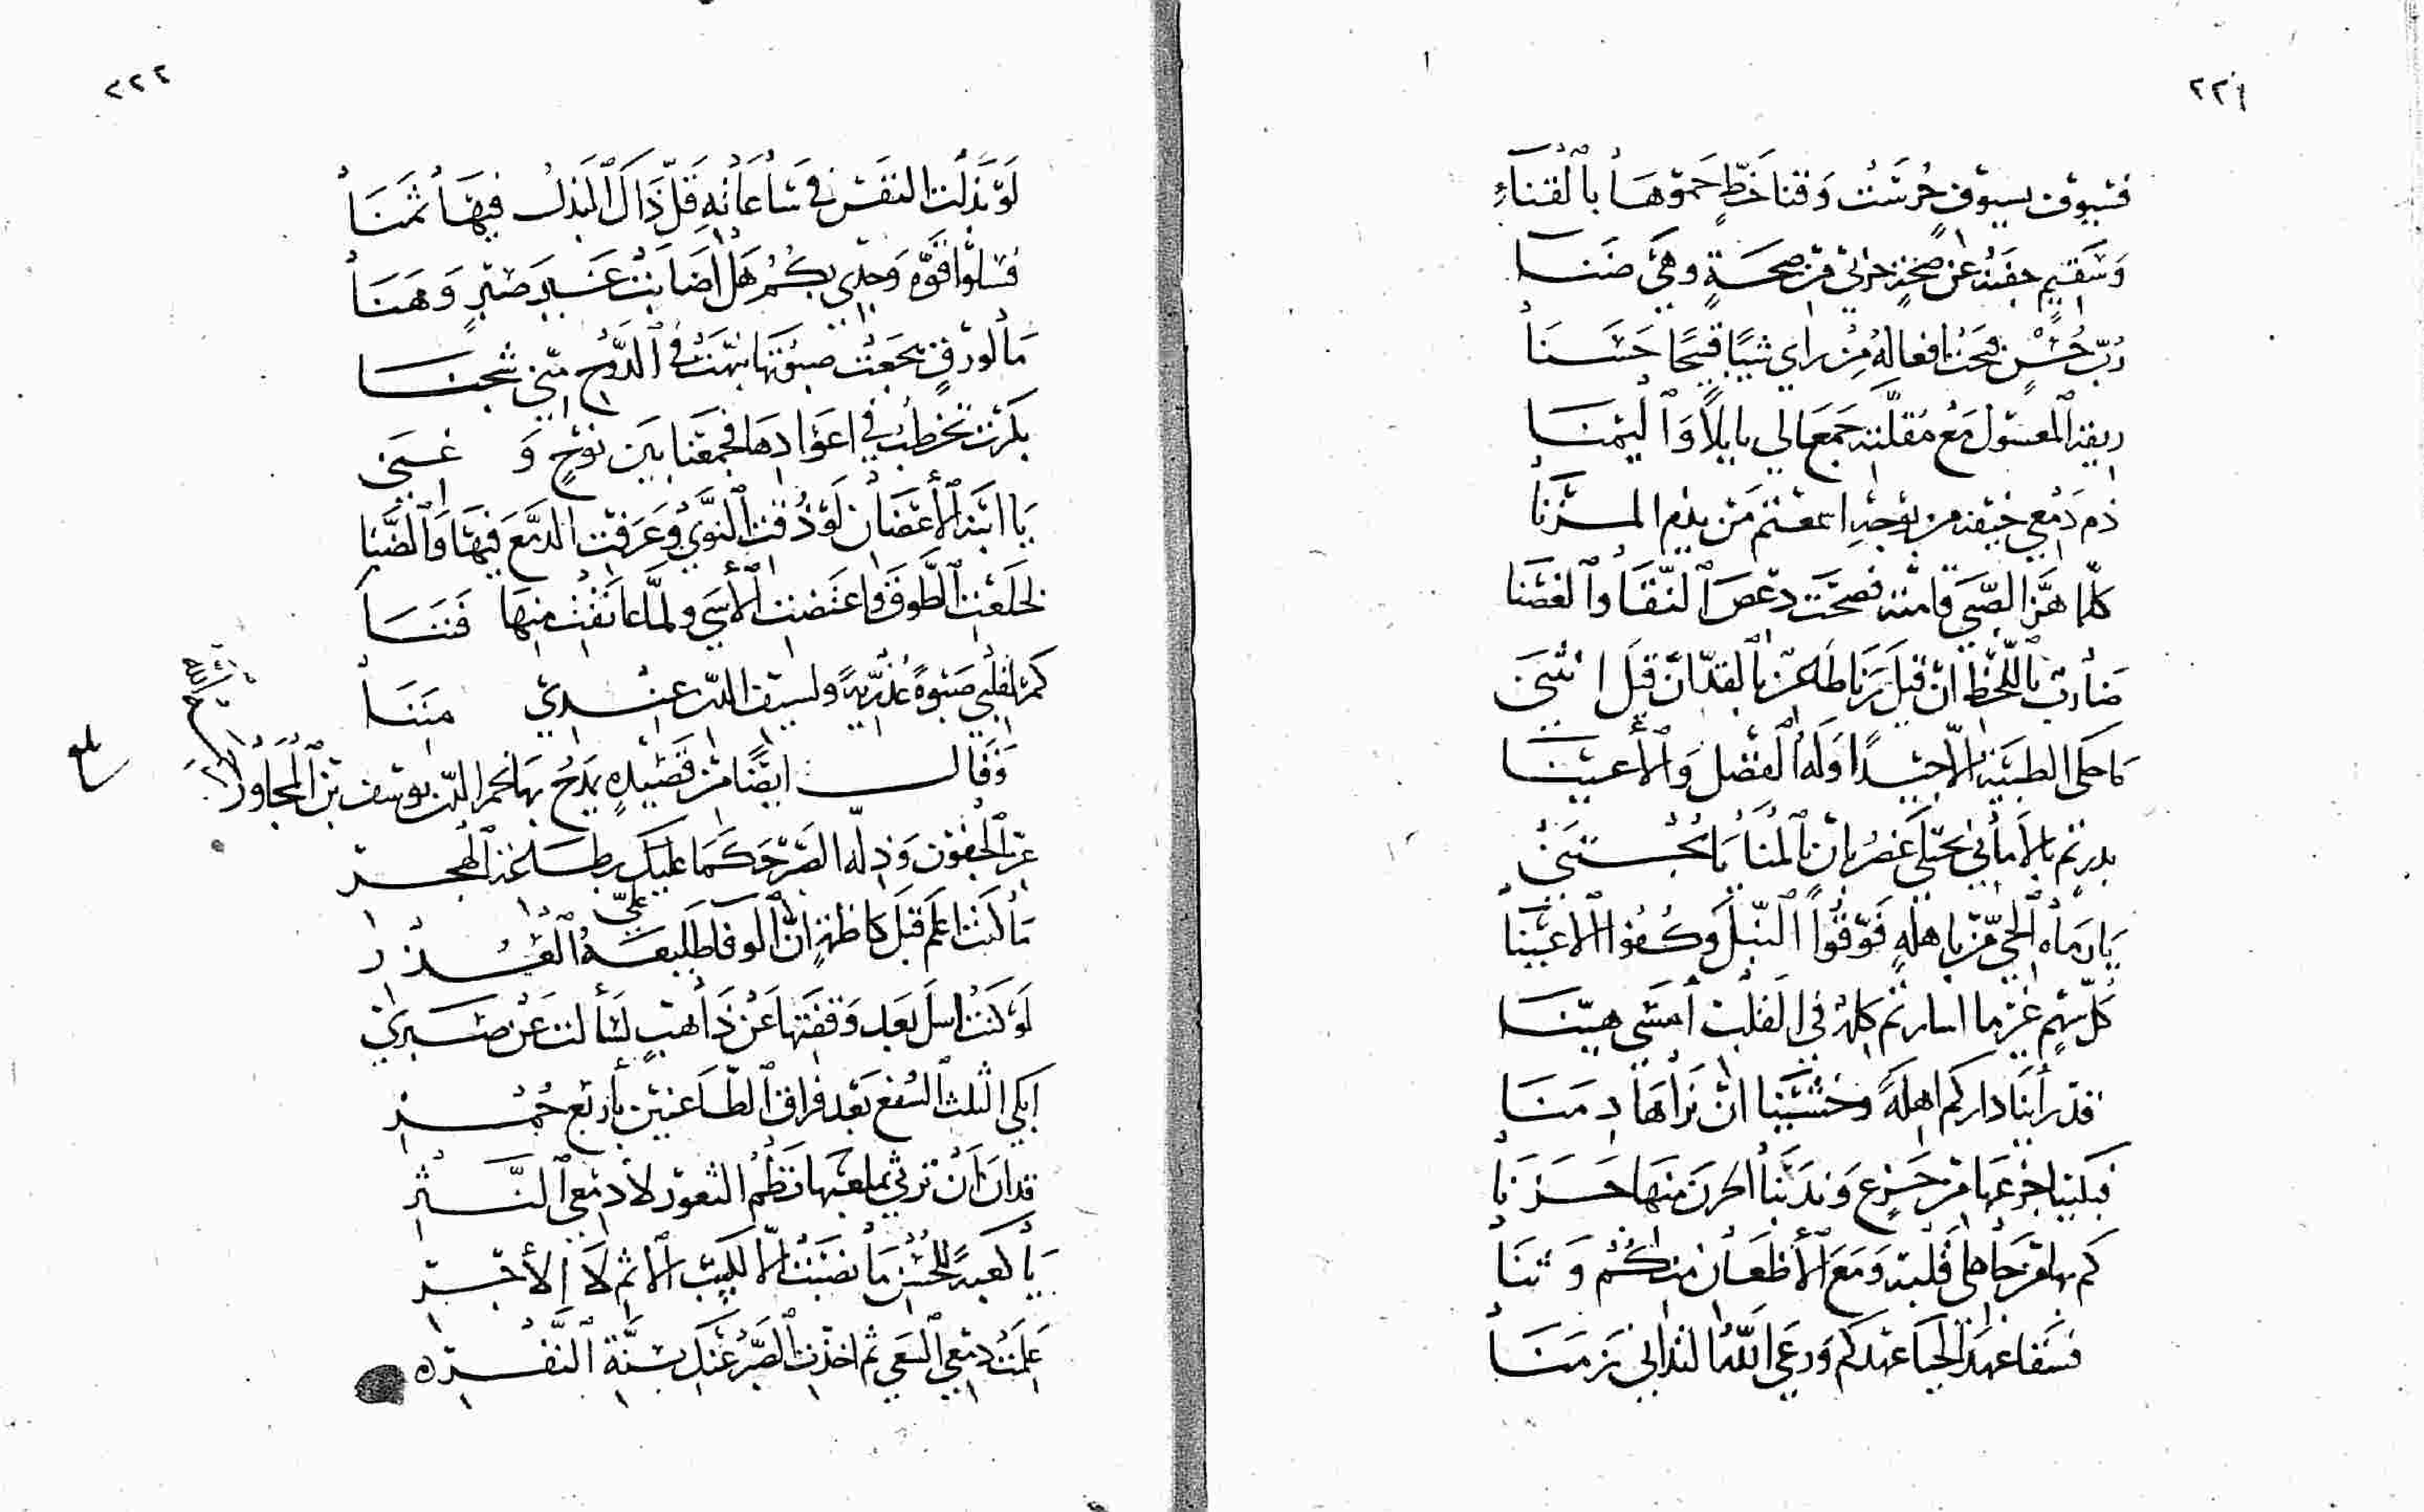 ٢٢١
فسيوف بسيوف حُرسَت وقنا خَطٍّ حموهَا بالقناءِ
وسَقيم جفنه عن صحة حربي من صحةٍ وهي ضنَا
رُبّ حُسْنٍ قبحت افعاله مِن راى شيًا قبيحًا حَسَنَا
ريقه المعسول مَع مقلته جمعَا لي بابلًا وَاليمنَا
ذم دَمعي خيفة من بوحه اسمعتم مَن يذم المزنَا
كلما هَزّ الصّبى قامته فضحَت دعصَ النّقَا والغصنَا
ضارب باللّحظ ان قيل رَنا طاعن بالقدّ ان قيل انثنى
ما حكى الظبية الّا جيدًا وَله الفضل وَالأعينَا
بدر تم بالأماني يجتلى غصن بان بالمنا يا يُجْتنى
يَا رماة الحي من باهلةٍ فَوّقُوا النبلَ وكفوا الاعينَا
كل سَهمٍ غير ما اسارتم كله في القلب أمسَى هينَا
قد رأينَا داركم اهلةً وخشينَا ان نرَاهَا دِمنَا
فبكينا جزعهَا من جَزعٍ وَندبنَا الحزن منهَا حَزنَا
كم بها من جاهلي قلبه وَمَعَ الأظعَان منكُمْ وَثنَا
فسقا عهدَ الحيَا عهدكم وَرعى اللهُ لنذاني زمنَا
٢٢٢
لَو بَذلت النفسَ في سَاعَاته قلّ ذَاكَ البَذلُ فيهَا ثمنَا
فسلوا قوّة وَجدي بكُم هَل أصَابت غير صبرٍ وَهنَا
مَا لورقٍ سجعت صبوتها نبّهت في الدَّوح منّي شجنَا
بكرت تخطبُ في اعوَادهَا فجمعنا بين نوْحٍ وَ غنى
يَا ابنة الأغصَان لَو ذُقت النَّوَى وَعَرفت الدمعَ فيهَا وَالضّنا
لخَلعت الطّوق وَاعتضت الأسَى ولمّا عَانقت منهَا فننَا
كم لقلبي صَبوةً عُذريةً ولسيف الدين عندي مننَا
وَقَال ايضًا من قصيدةٍ يمدحُ بهَا نجم الدين يوسف بن المجَاور
عز الجفون وَذلّة الصبر حَكمَا عَليك بطَاعَة الهجر
مَا كنت اعلم قبلَ كاظمةٍ انّ الوفا طليعَةُ الغدر
عليّ
لَو كنت اسل بَعد وَقفتها عَنْ ذَاهبٍ لسَألت عَن صَبري
ابكي الثلث السُفع بَعد فراق الظّاعنين بأربع حُمْر
قد ان أن ترثي بملعبهَا نظم الثغور لأدمعي النَّثر
يَا كعبةً للحُسْن مَا نصَبَت الّا لكسب الاثم لَا الأجر
عَلمت دمعي السعي ثم اخذت الصبرَ عَنك بسنّة النَّفر
بلغ